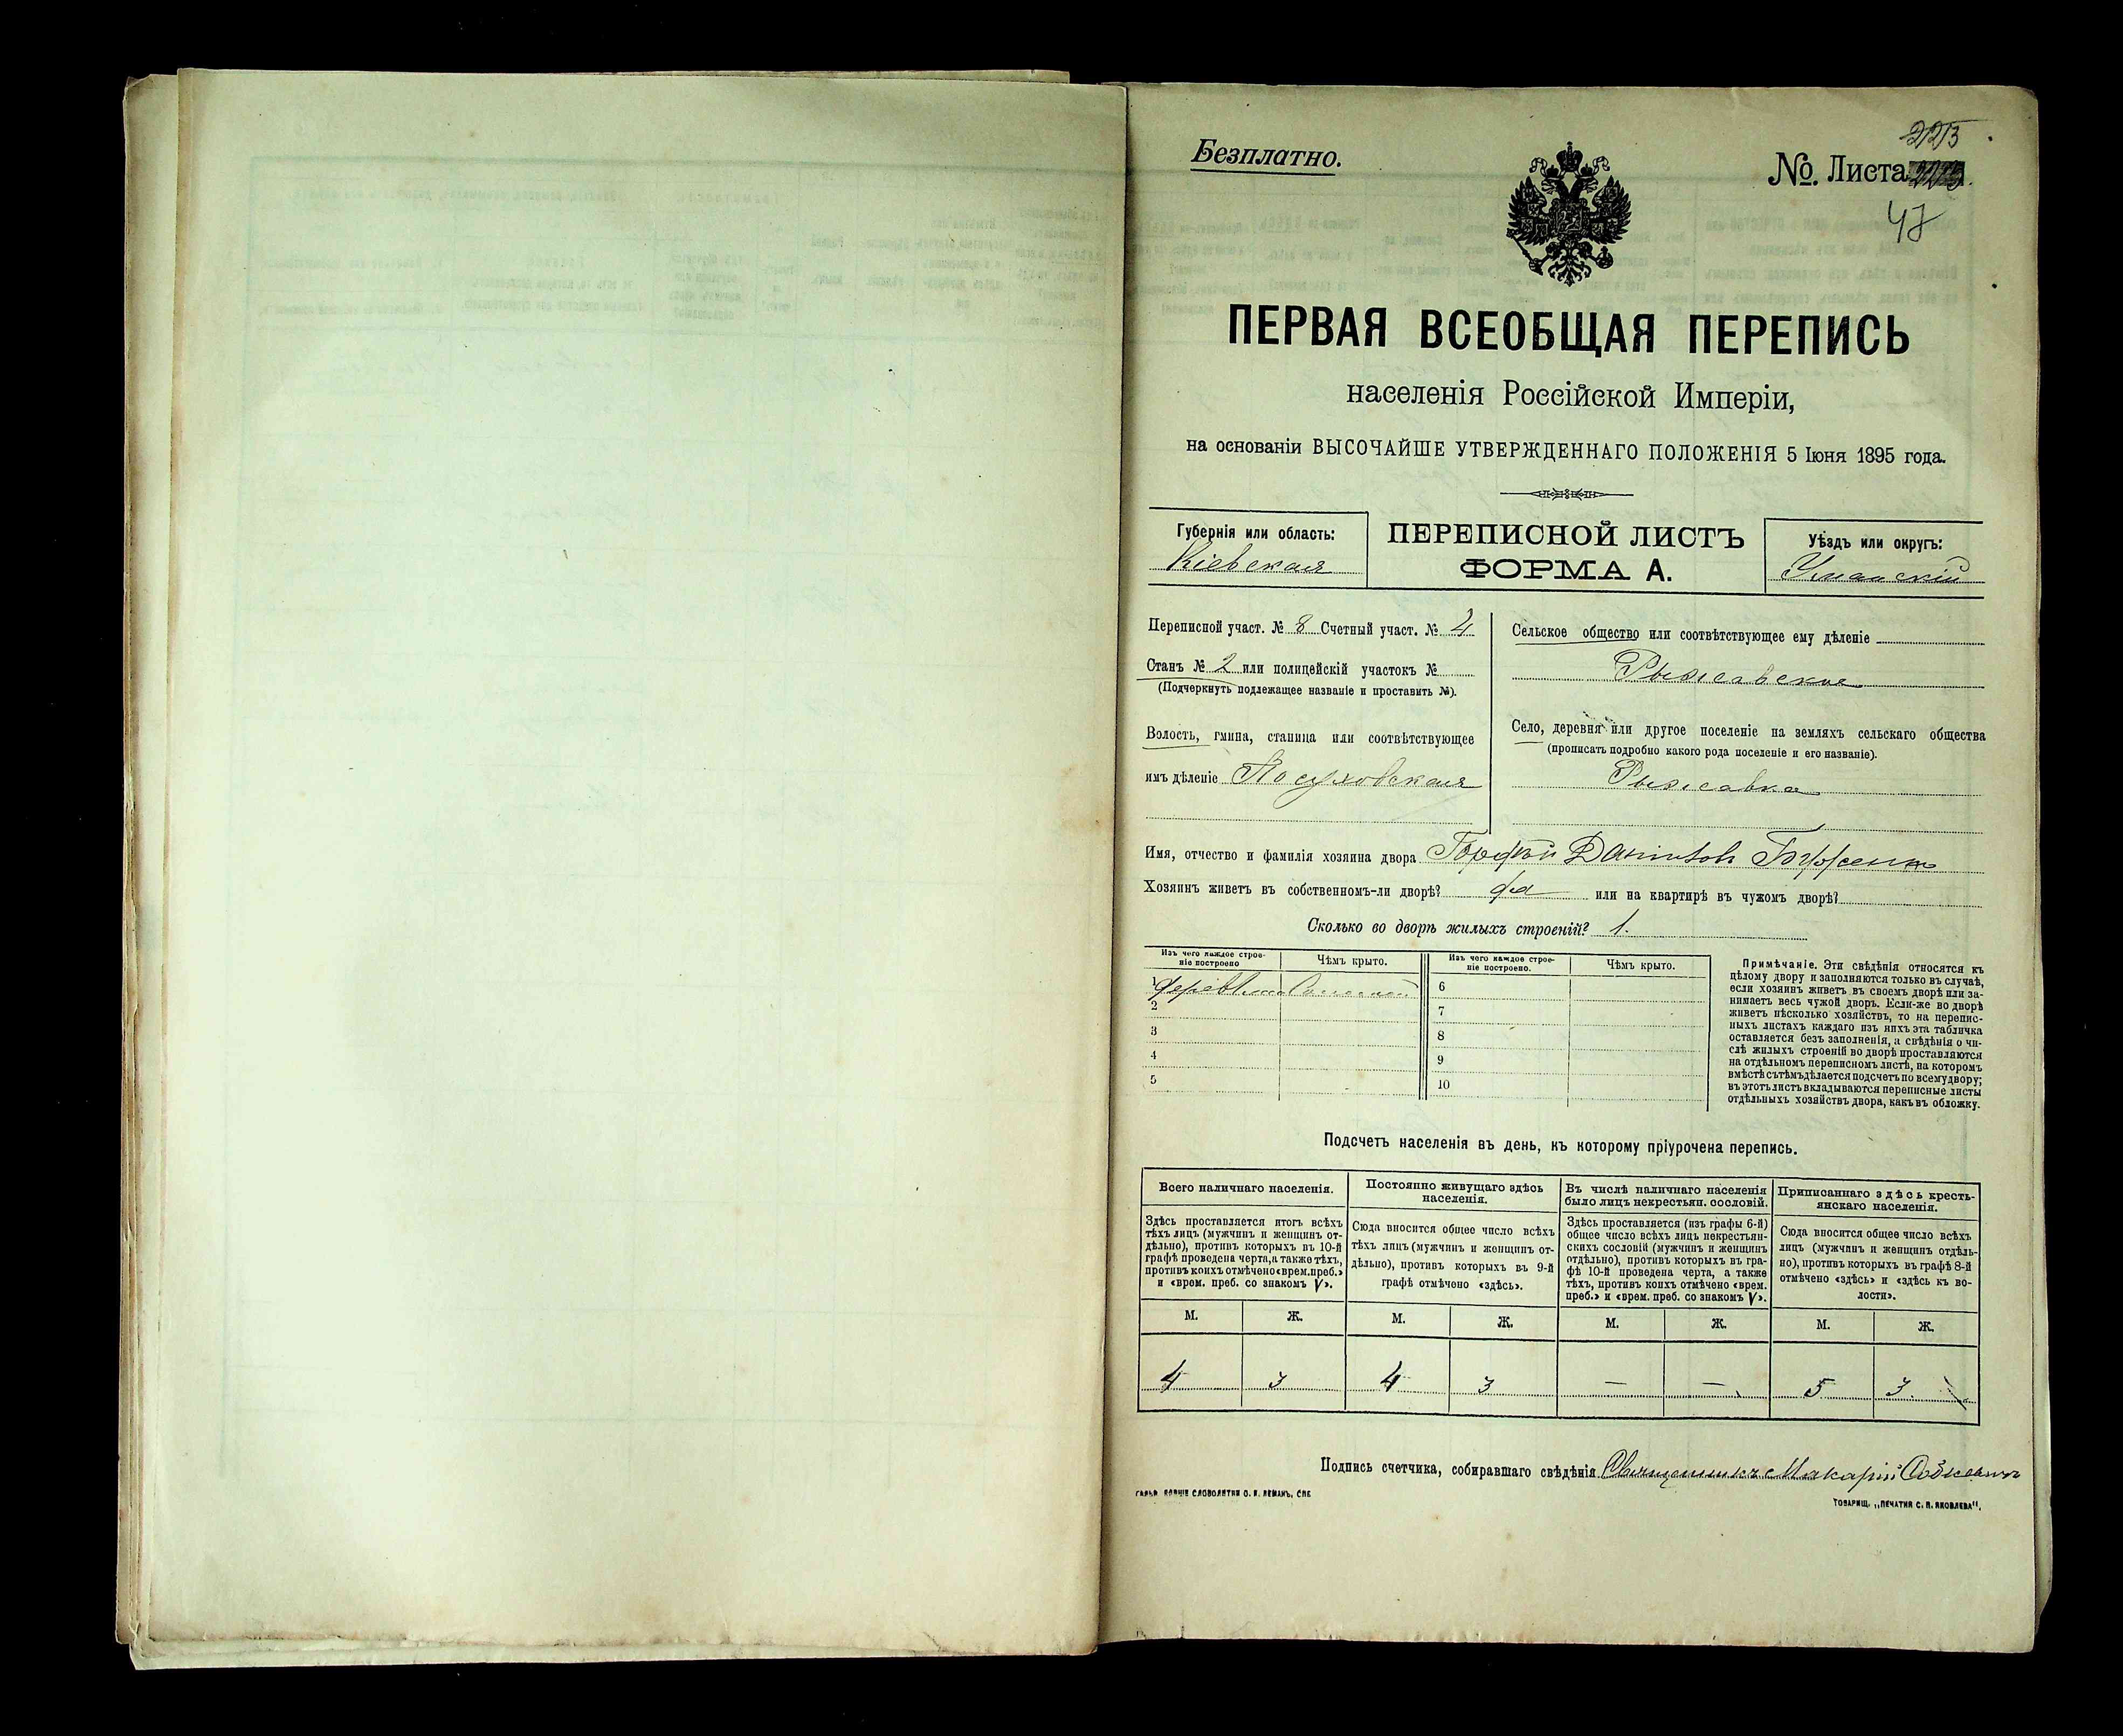 Безплатно.
№. Листа
47
ПЕРВАЯ ВСЕОБЩАЯ ПЕРЕПИСЬ
населенія Россійской Имперіи,
на основаніи ВЫСОЧАЙШЕ УТВЕРЖДЕННАГО ПОЛОЖЕНІЯ 5 Іюня 1895 года.
Губернія или область:
Кіевская
ПЕРЕПИСНОЙ ЛИСТЪ
ФОРМА А.
Уѣздъ или округъ:
Уманскій
Переписной участ. № 8 Счетный участ. № 4
Станъ № 2 или полицейскій участокъ №
(Подчеркнуть подлежащее названіе и проставить №).
Волость, гмина, станица или соотвѣтствующее
имъ дѣленіе Посуховская
Сельское общество или соотвѣтствующее ему дѣленіе
Рыжавское
Село, деревня или другое поселеніе на земляхъ сельскаго общества
(прописать подробно какого рода поселеніе и его названіе).
Рыжавка
Имя, отчество и фамилія хозяина двора Даніиловъ
Хозяинъ живетъ въ собственномъ-ли дворѣ? да или на квартирѣ въ чужомъ дворѣ?
Сколько во дворѣ жилыхъ строеній? 1.
Изъ чего каждое строе-
ніе построено
Чѣмъ крыто.
Изъ чего каждое строе-
ніе построено.
Чѣмъ крыто.
1
2
3
4
5
6
7
8
9
10
Примѣчаніе. Эти свѣдѣнія относятся къ
цѣлому двору и заполняются только въ случаѣ,
если хозяинъ живетъ въ своемъ дворѣ или за-
нимаетъ весь чужой дворъ. Если-же во дворѣ
живетъ нѣсколько хозяйствъ, то на перепис-
ныхъ листахъ каждаго изъ нихъ эта табличка
оставляется безъ заполненія, а свѣдѣнія о чи-
слѣ жилыхъ строеній во дворѣ проставляются
на отдѣльномъ переписномъ листѣ, на которомъ
вмѣстѣ съ тѣмъ дѣлается подсчетъ по всему двору;
въ этотъ листъ вкладываются переписные листы
отдѣльныхъ хозяйствъ двора, какъ въ обложку.
Подсчетъ населенія въ день, къ которому пріурочена перепись.
Всего наличнаго населенія.
Здѣсь проставляется итогъ всѣхъ
тѣхъ лицъ (мужчинъ и женщинъ от-
дѣльно), противъ которыхъ въ 10-й
графѣ проведена черта, а также тѣхъ,
противъ коихъ отмѣчено «врем. преб.»
и «врем. преб. со знакомъ V».
Постоянно живущаго здѣсь
населенія.
Сюда вносится общее число всѣхъ
тѣхъ лицъ (мужчинъ и женщинъ от-
дѣльно), противъ которыхъ въ 9-й
графѣ отмѣчено «здѣсь».
Въ числѣ наличнаго населенія
было лицъ некрестьян. сословій.
Здѣсь проставляется (изъ графы 6-й)
общее число всѣхъ лицъ некрестьян-
скихъ сословій (мужчинъ и женщинъ
отдѣльно), противъ которыхъ въ гра-
фѣ 10-й проведена черта, а также
тѣхъ, противъ коихъ отмѣчено «врем.
преб.» и «врем. преб. со знакомъ V».
Приписаннаго здѣсь кресть-
янскаго населенія.
Сюда вносится общее число всѣхъ
лицъ (мужчинъ и женщинъ отдѣль-
но), противъ которыхъ въ графѣ 8-й
отмѣчено «здѣсь» и «здѣсь къ во-
лости».
М. Ж. М. Ж. М. Ж. М. Ж.
4 3 4 3 — — 5 3.
Подпись счетчика, собиравшаго свѣдѣнія Священникъ Макарій
ТОВАРИЩ. „ПЕЧАТНЯ С. П. ЯКОВЛЕВА".